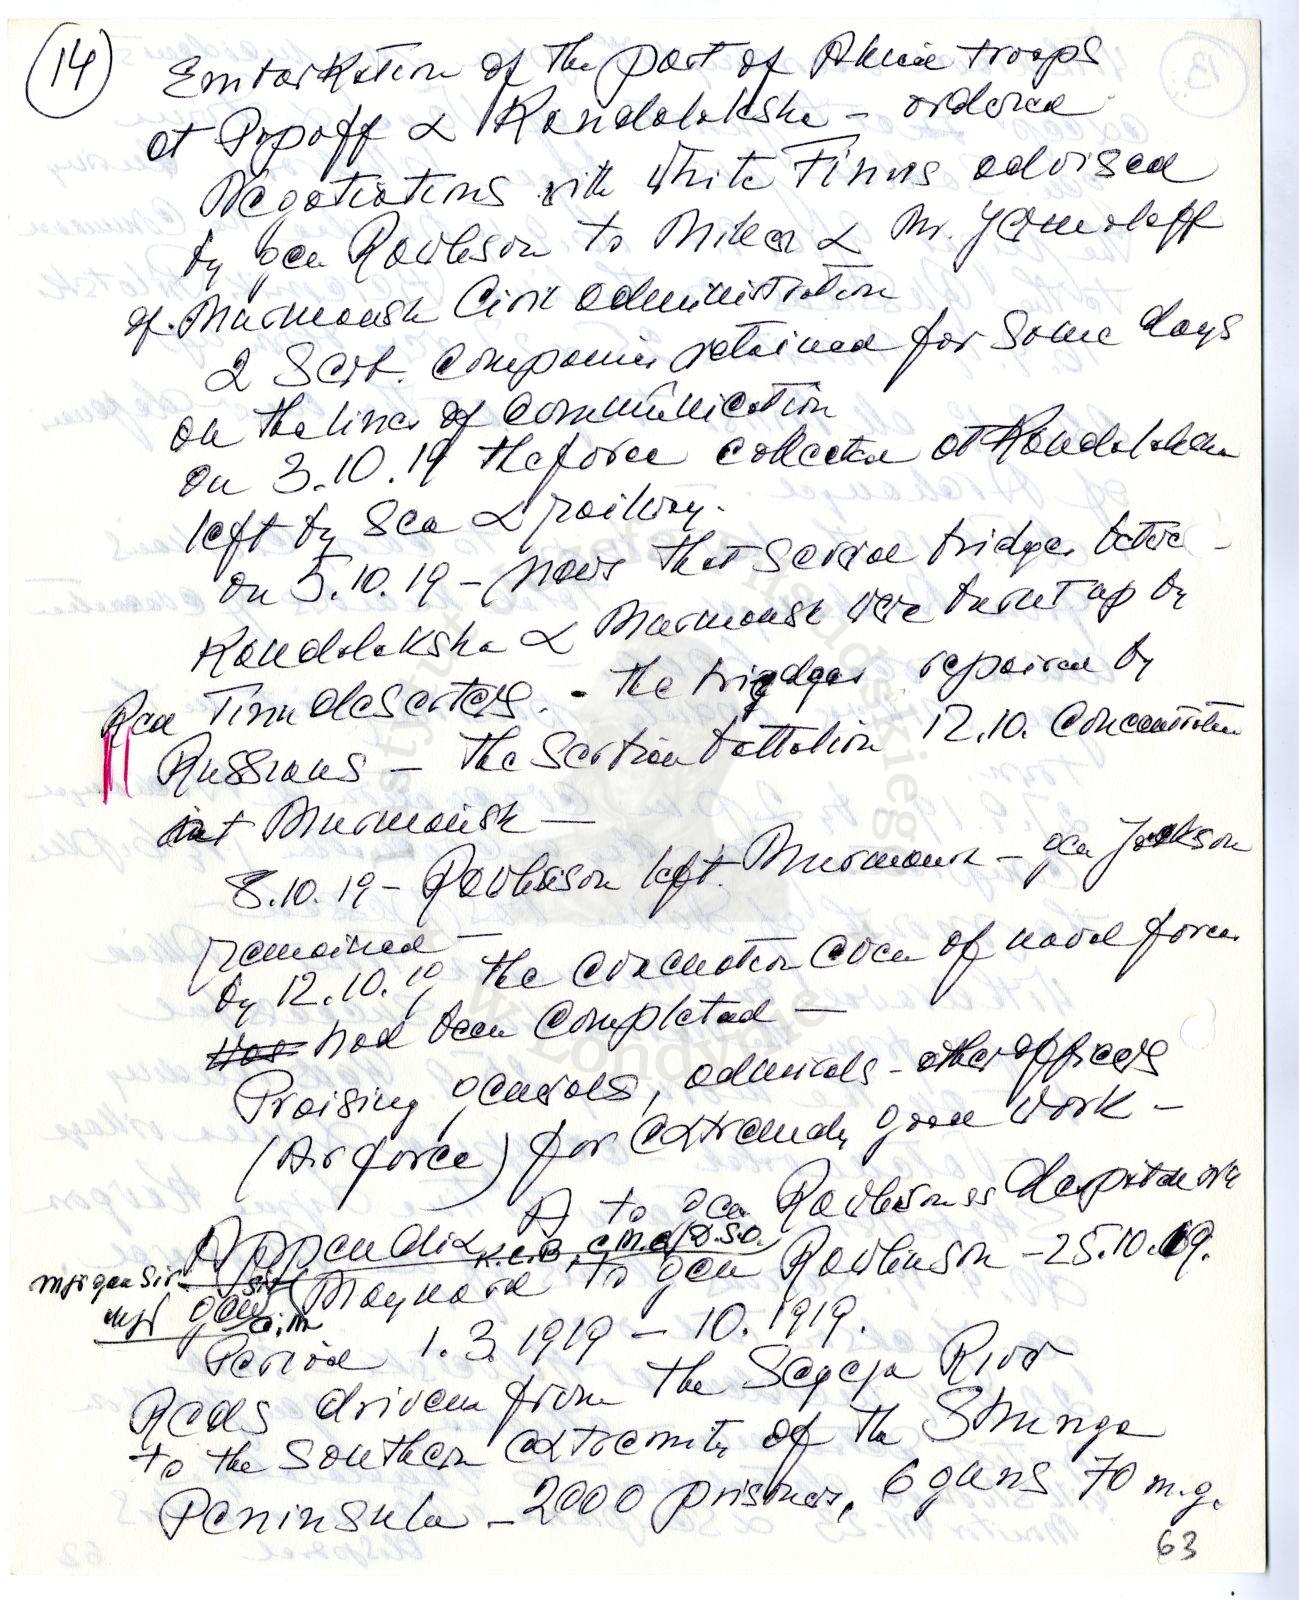 14
Embarkation of the part of Allied troops
at Popoff & Kandalaksha - ordered
Negotiations with White Finns advised
by gen Rawlinson to Miller & Mr. Yermoloff
of Murmansk Civil administration
2 Serb. Companies retained for some days
on the lines of communication
on 3.10.19 the force collected at Kandalaksha
left by Sea & railway.
on 5.10.19 - news that several bridges betwe-
Kandalaksha & Murmansk were burnt up by
Red Finn deserters. - the bridges repaired by
Russians - the Serbian battalion 12.10. Concentrated
at Murmansk -
8.10.19 - Rawlinson left Murmansk - gen Jackson
remained -
by 12.10.19 the evacuation even of naval forces
had been completed -
Praising generals, admirals - other officers
(Air force) for extremely good work -
A to gen Rawlinsons despatch
Appendix K.C.B, C.M.G, D.S.O.
Mjr gen Sir gen Sir C.M. Maynard to gen Rawlinson - 25.10.19.
Period 1.3.1919 - 10.1919.
Reds driven from the Segeja River
to the southern extremity of the Shunga
Peninsula - 2000 prisoners, 6 guns 70 m.g.
63
Instytut Józefa Piłsudskiego
w Londynie